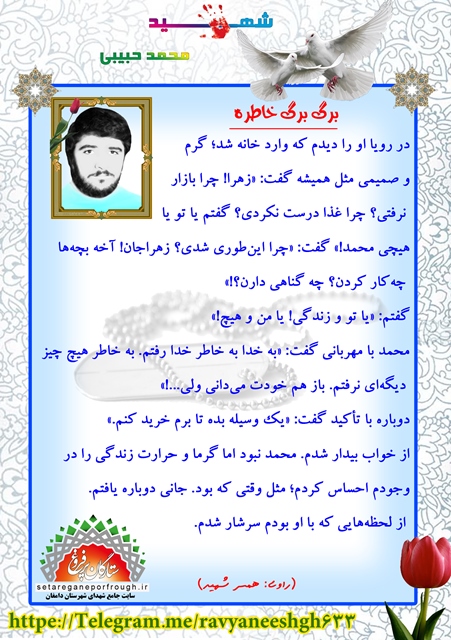 شهید
محمد حبیبی
برگ برگ خاطره
در رویا او را دیدم که وارد خانه شد؛ گرم
و صمیمی مثل همیشه گفت: «زهرا! چرا بازار
نرفتی؟ چرا غذا درست نکردی؟ گفتم یا تو یا
هیچی محمد!» گفت: «چرا این‌طوری شدی؟ زهراجان! آخه بچه‌ها
چه‌کار کردن؟ چه گناهی دارن؟!»
گفتم: «یا تو و زندگی! یا من و هیچ!»
محمد با مهربانی گفت: «به خدا به خاطر خدا رفتم. به خاطر هیچ چیز
دیگه‌ای نرفتم. باز هم خودت می‌دانی ولی...!»
دوباره با تأکید گفت: «یک وسیله بده تا برم خرید کنم.»
از خواب بیدار شدم. محمد نبود اما گرما و حرارت زندگی را در
وجودم احساس کردم؛ مثل وقتی که بود. جانی دوباره یافتم.
از لحظه‌هایی که با او بودم سرشار شدم.
(راوی: همسر شهید)
ستارگان پرفروغ
setareganeporfrough.ir
سایت جامع شهدای شهرستان دامغان
https://Telegram.me/ravyaneeshgh۶۳۳